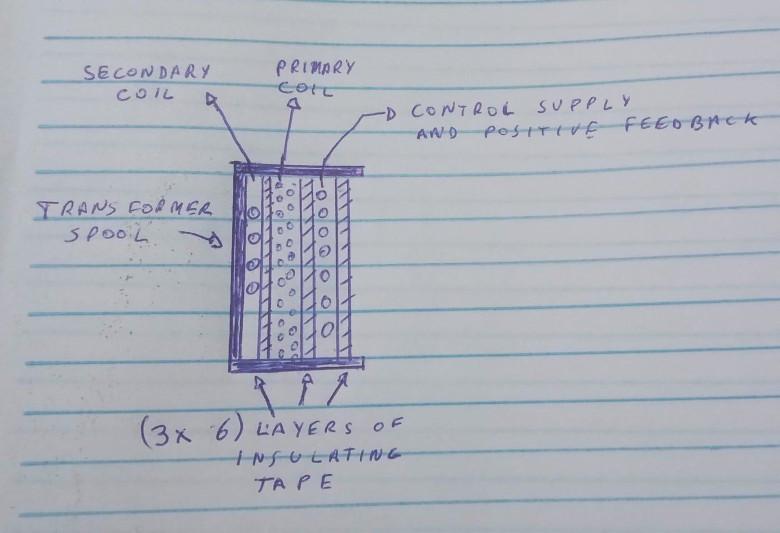 SECONDARY
COIL
PRIMARY
COIL
CONTROL SUPPLY
AND POSITIVE FEEDBACK
TRANSFORMER
SPOOL
(3x 6) LAYERS OF
INSULATING
TAPE